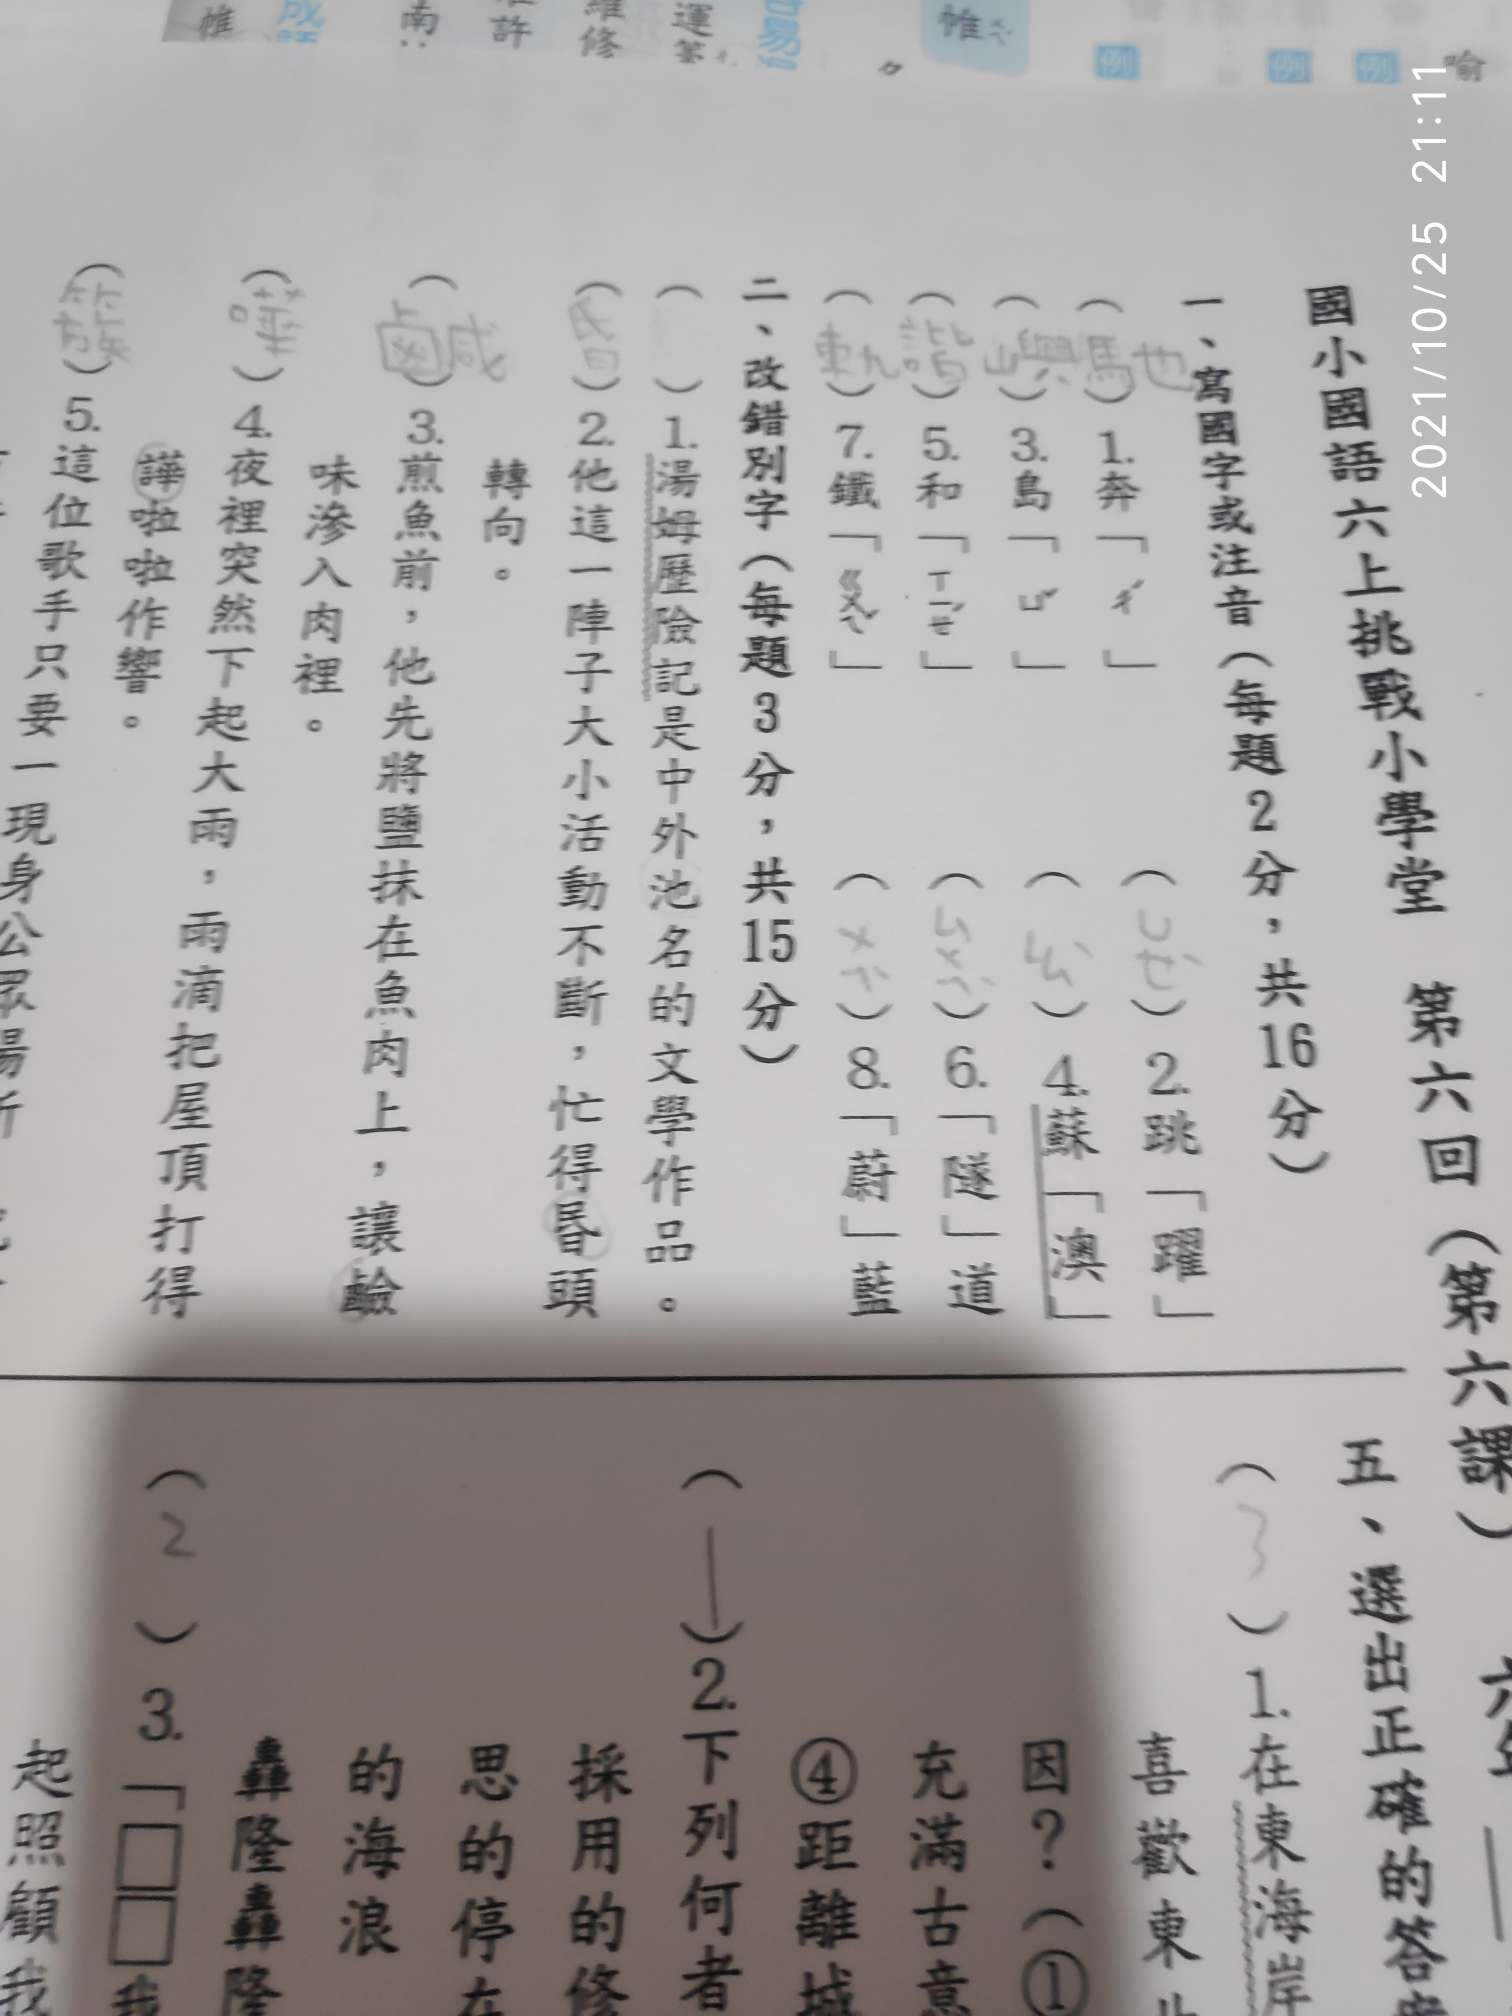 2021/10/25 21:11
帷
南
許
維修
運
易
帷
例
例
例
喻
國小國語六上挑戰小學堂 第六回（第六課）
一、寫國字或注音（每題2分，共16分）
（馳）1.奔「ㄔˊ」
（ㄩㄝˋ）2.跳「躍」
（嶼）3.島「ㄩˇ」
（ㄠˋ）4.蘇「澳」
（諧）5.和「ㄒㄧㄝˊ」
（ㄙㄨㄟˋ）6.「隧」道
（軌）7.鐵「ㄍㄨㄟˇ」
（ㄨㄟˋ）8.「蔚」藍
二、改錯別字（每題3分，共15分）
（ ）1.湯姆歷險記是中外池名的文學作品。
（昏）2.他這一陣子大小活動不斷，忙得昬頭
轉向。
（鹹）3.煎魚前，他先將鹽抹在魚肉上，讓鹼
味滲入肉裡。
（嘩）4.夜裡突然下起大雨，雨滴把屋頂打得
譁啦啦作響。
（簇）5.這位歌手只要一現身公眾場所
五、選出正確的答
（3）1.在東海岸
喜歡東北
因？（①
充滿古意
④距離城
（1）2.下列何者
採用的修
思的停在
的海浪
轟隆轟隆
（2）3.「□□我
起照顧我